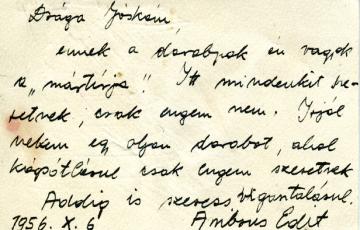 Drága Jóskám,
ennek a darabnak én vagyok
a „mártírja". Itt mindenkit sze-
retnek, csak engem nem. Írjál
nekem egy olyan darabot, ahol
kárpótlásul csak engem szeretnek
Addig is szeress vigasztalásul.
1956. X. 6 Ambrus Edit